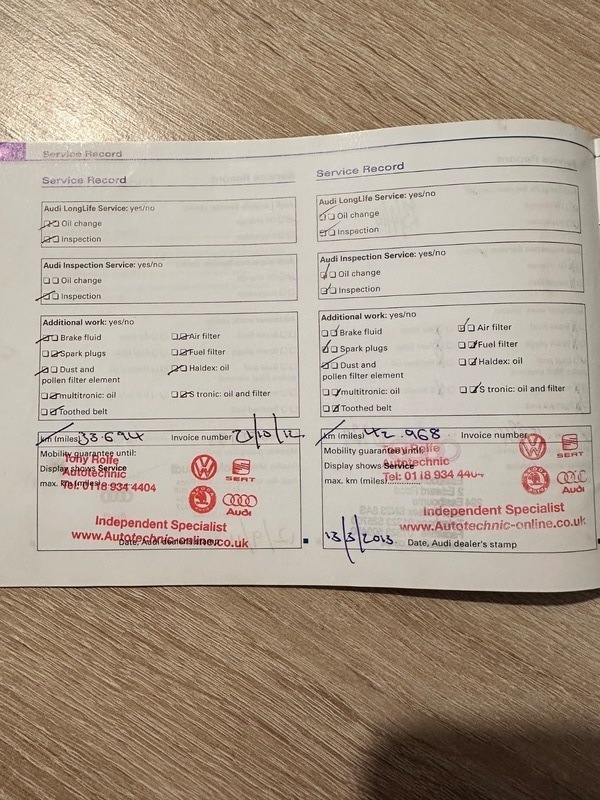 Service Record
Service Record
Audi LongLife Service: yes/no
Oil change
Inspection
Audi Inspection Service: yes/no
Oil change
Inspection
Additional work: yes/no
Brake fluid
Air filter
Spark plugs
Fuel filter
Dust and
pollen filter element
Haldex: oil
multitronic: oil
S tronic: oil and filter
Toothed belt
km (miles) 33.694 Invoice number 21/10/12
Mobility guarantee until:
Display shows Service
max. km (miles)
Tony Rolfe
Autotechnic
Tel: 0118 934 4404
SEAT
Audi
Independent Specialist
www.Autotechnic-online.co.uk
Date, Audi dealer's stamp
Service Record
Audi LongLife Service: yes/no
Oil change
Inspection
Audi Inspection Service: yes/no
Oil change
Inspection
Additional work: yes/no
Brake fluid
Air filter
Spark plugs
Fuel filter
Dust and
pollen filter element
Haldex: oil
multitronic: oil
S tronic: oil and filter
Toothed belt
km (miles) 42.968 Invoice number
Mobility guarantee until:
Display shows Service
max. km (miles)
Tony Rolfe
Autotechnic
Tel: 0118 934 440
SEAT
Audi
Independent Specialist
www.Autotechnic-online.co.uk
13/3/2013 Date, Audi dealer's stamp